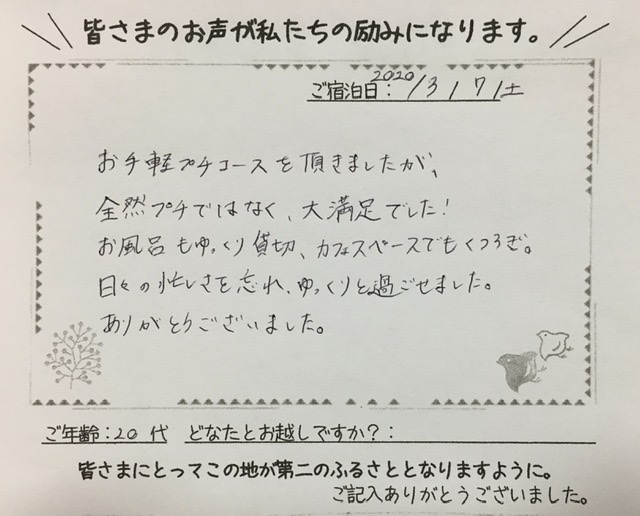 皆さまのお声が私たちの励みになります。
ご宿泊日：2020/3/7/土
お手軽プチコースを頂きましたが、
全然プチではなく、大満足でした！
お風呂もゆっくり貸切、カフェスペースでもくつろぎ。
日々の忙しさを忘れ、ゆっくりと過ごせました。
ありがとうございました。
ご年齢：20代 どなたとお越しですか？：
皆さまにとってこの地が第二のふるさととなりますように。
ご記入ありがとうございました。